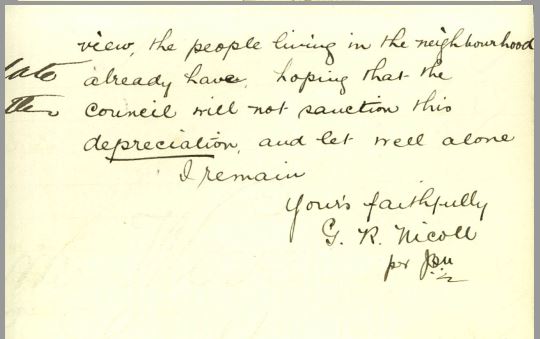 view, the people living in the neighbourhood
late already have, hoping that the
council will not sanction this
depreciation, and let well alone
I remain
Your's faithfully
G. R. Nicoll
per